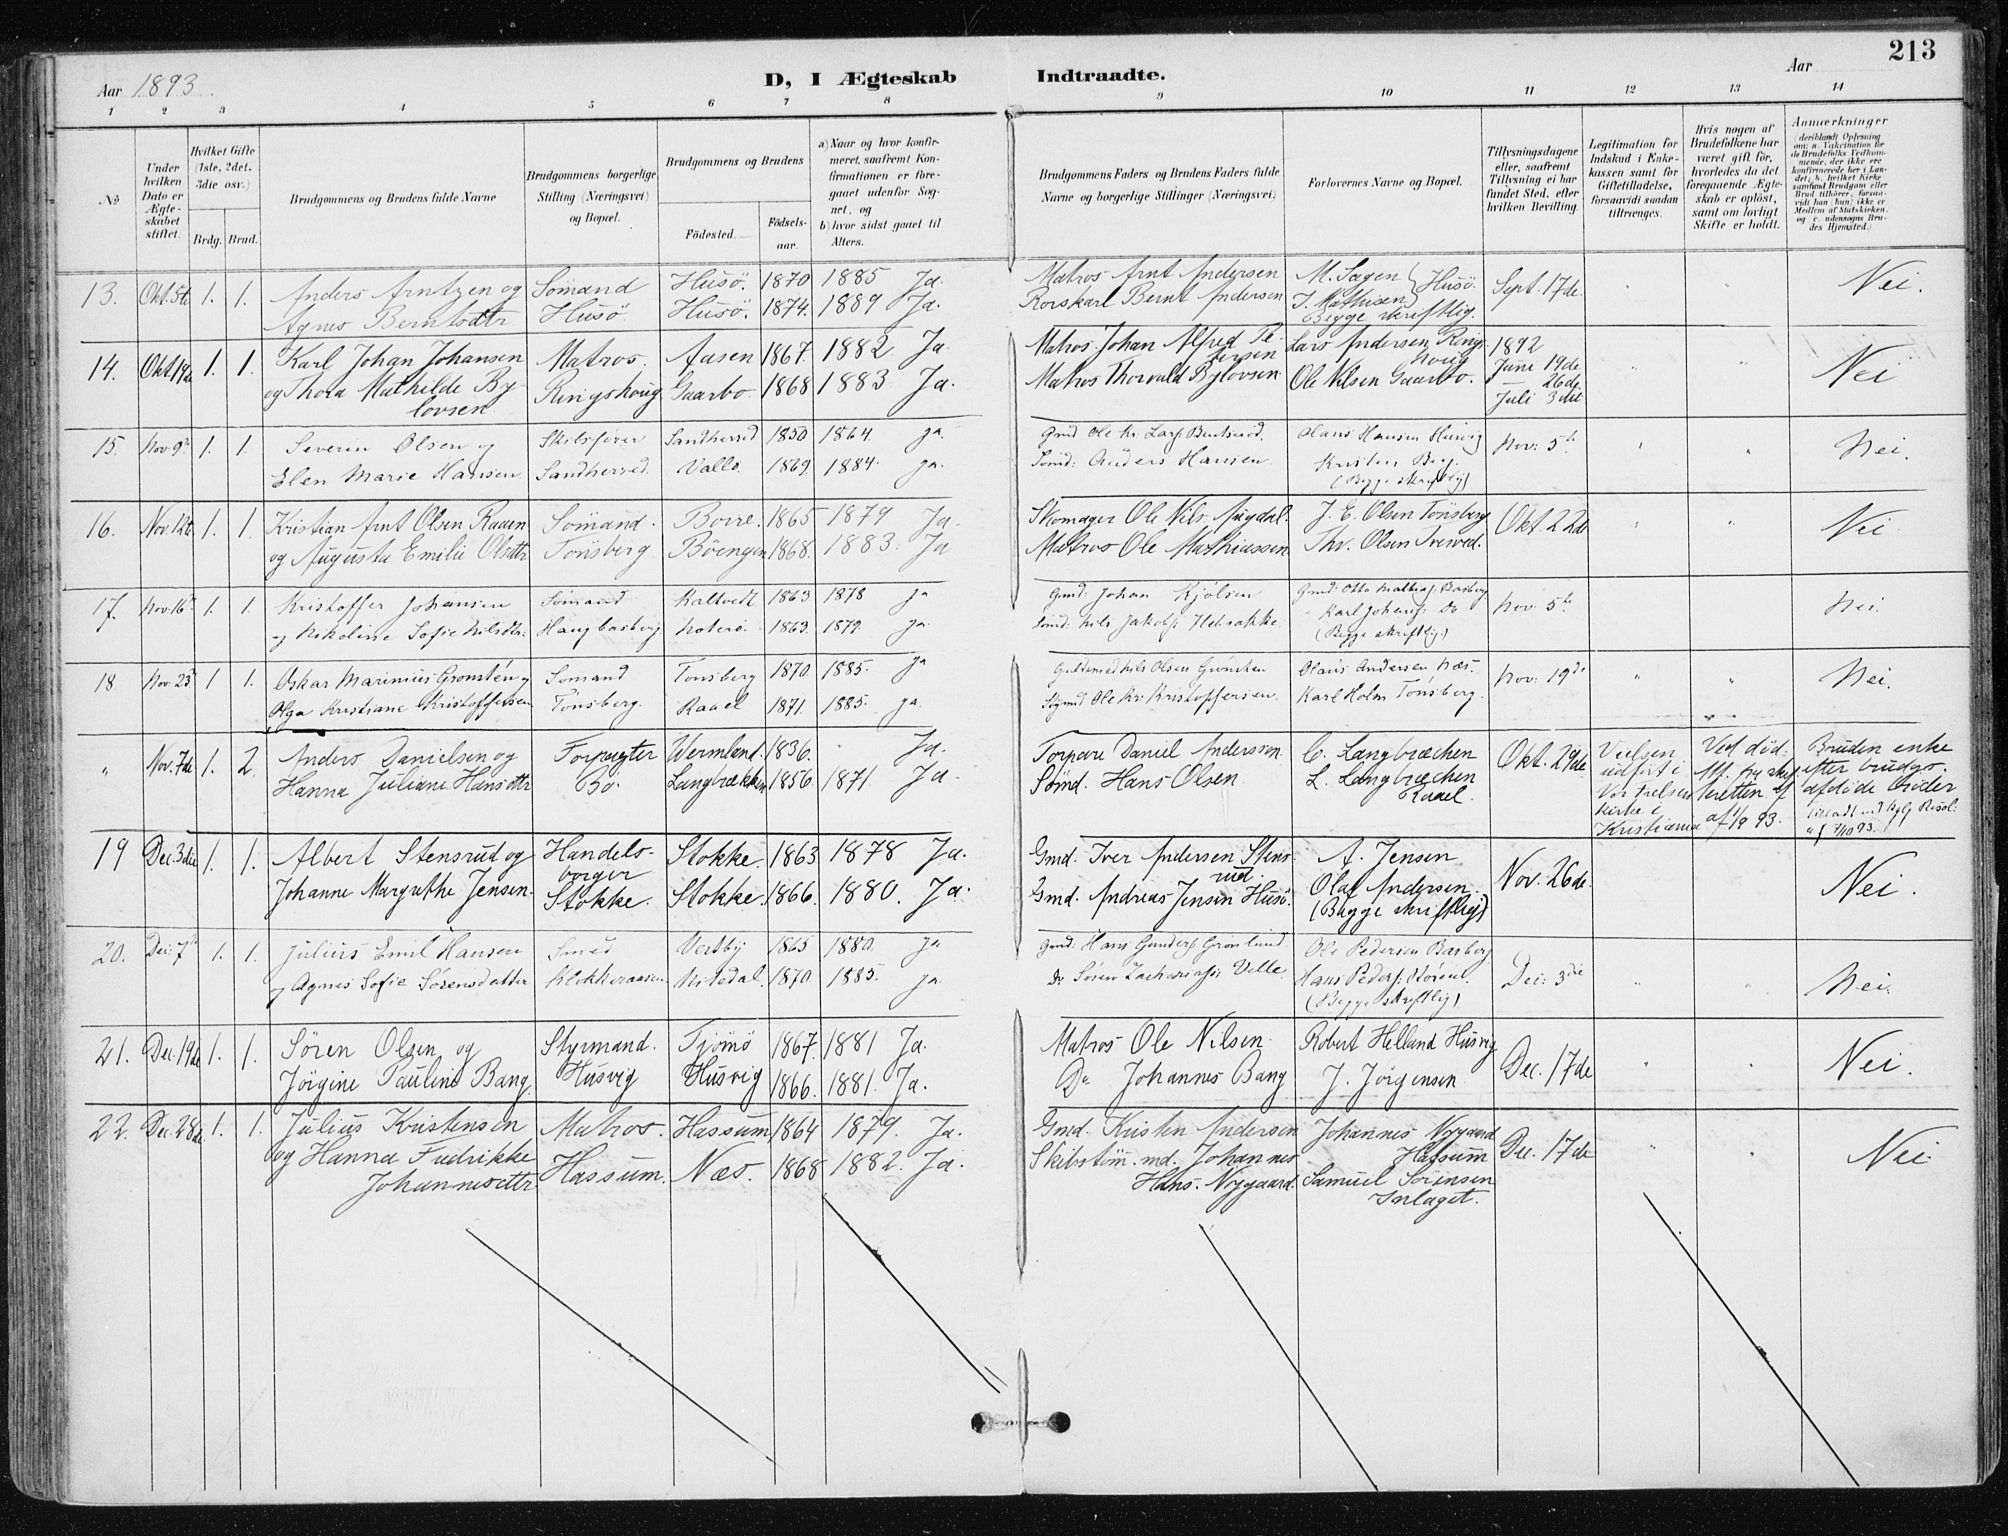 213
Aar 1893. D, I Ægteskab Indtraadte. Aar
1 2 3 4 5 6 7 8 9 10 11 12 13 14
No
Under hvilken Dato er Ægteskabet stiftet.
Hvilket Gifte (1ste, 2det, 3die osv.)
Brdg. Brud.
Brudgommens og Brudens fulde Navne
Brudgommens borgerlige Stilling (Næringsvei) og Bopæl.
Brudgommens og Brudens
Fødested. Fødselsaar.
a) Naar og hvor konfirmeret, saafremt Konfirmationen er foregaaet udenfor Sognet, og
b) hvor sidst gaaet til Alters.
Brudgommens Faders og Brudens Faders fulde Navne og borgerlige Stillinger (Næringsvei)
Forlovernes Navne og Bopæl.
Tillysningsdagene eller, saafremt Tillysning ei har fundet Sted, efter hvilken Bevilling
Legitimation for Indskud i Enkekassen samt for Giftetilladelse, forsaavidt saadan tiltrænges.
Hvis nogen af Brudefolkene har været gift før, hvorledes da det foregaaende Ægteskab er opløst, samt om lovligt Skifte er holdt.
Anmærkninger (deriblandt Oplysning om: a. Vakcination for de Brudefolks Vedkommende, der ikke ere konfirmerede her i Landet; b. hvilket Kirkesamfund Brudgom eller Brud tilhører, forsaavidt han (hun) ikke er Medlem af Statskirken, og c. udensogns Brudes Hjemsted.
13. Okt. 5te 1. 1. Anders Arntzen og Sømand Husö. 1870 1885 Ja. Matros Arnt Andersen M. Sagen Husö. Sept. 17de Nei.
Agnes Berntsdtr Husö. Husö. 1874. 1889 Ja. Rorskarl Bernt Andersen J. Mathisen
Begge skriftlig.
14. Okt. 19de 1. 1. Karl Johan Johansen Matros. Aasen 1867. 1882 Ja. Matros Johan Alfred Petersen Lars Andersen Ringshoug 1892 Nei
og Thora Mathilde Bylovsen Ringshoug Gaarbo. 1868 1883 Ja. Matros Thorvald Bylovsen Ole Nilsen Gaarbo. Juni 19de
26de
Juli 3die
15. Nov. 9de 1. 1. Severin Olsen og Skibsfører Sandherred 1850 1864. ja. Gmd Ole Kr. Lars. Olaus Hansen Husvig Nov: 5te Nei.
Elen Marie Hansen Sandherred. Vallø. 1869. 1884. ja. Sømd: Anders Hansen Kristen
(Begge skriftlig)
16. Nov. 12te 1. 1. Kristian Arnt Olsen Raaen Sømand. Borre. 1865 1879 Ja. Skomager Ole Nils. J. E. Olsen Tönsberg Okt. 22de Nei
og Augusta Emilie Olsdtr Tönsberg. Böengen 1868. 1883. Ja Matros Ole Mathiassen Thv. Olsen Tveved.
17. Nov. 16de 1. 1. Kristoffer Johansen Sømand Kaltvedt 1863 1878 ja Gmd: Johan Kjølsen Gmd: Otto Basberg Nov: 5te Nei.
og Nikoline Sofie Nilsdtr: Haugbasberg Noterø. 1863. 1879. ja. Sømd: Nils Jakobs: Karl Johans: Do
(Begge skriftlig.)
18 Nov. 23de 1 1. Oskar Marinius Grønsten og Sømand Tønsberg 1870. 1885. ja Guldsmed Nils Olsen Grønsten Olaus Andersen Næs. Nov: 19de Nei.
Olga Kristiane Kristoffersen Tønsberg. Raael 1871. 1885. ja. Stymd Ole Kr. Kristoffersen. Karl Holm Tönsberg.
" Nov. 7de 1. 2. Anders Danielsen og Forpagter Wermland. 1836. Ja. Torpare Daniel Andersson C. Langbræchen Okt. 29de Vielsen Ved död. Bruden enke
Hanna Juliane Hansdtr Bö. Langbrækken 1856 1871. Ja. Sømd. Hans Olsen. L. Langbræchen udført i Att. fra skifteretten efter brudgs.
Raael. Vor Frelsers kirke i Kristiania af 93. afdöde broder
19 Dec. 3die 1. 1. Albert Stensrud og Handelsborger Stokke. 1863 1878 Ja. Gmd. Iver Andersen Stensrud. A. Jensen Nov. 26de Nei.
Johanne Margrethe Jensen. Stokke. Stokke. 1866. 1880. Ja. Gmd. Andreas Jensen Husö. Olaf Andersen.
(Begge skriftlig)
20. Dec: 7de 1. 1. Julius Emil Hansen Smed Vestby 1865 1880. ja Gmd: Hans Gunders: Grønlund. Ole Pedersen Basberg Dec: 3die Nei.
og Agnes Sofie Sørensdatter Klokkeraasen Nitedal 1870 1885. ja. Do Søren Zacharias: Velle Hans Peders:
(Begge skriftlig)
21. Dec. 19de 1. 1. Sören Olsen og Styrmand. Tjömö 1867. 1881 Ja. Matros Ole Nilsen Robert Helland Husvig Dec. 17de Nei.
Jörgine Pauline Bang. Husvig Husvig 1866. 1881. Ja. Do Johannes Bang J. Jörgensen
22. Dec. 28de 1. 1. Julius Kristensen Matros. Hassum 1864 1879. Ja. Gmd. Kristen Andersen Johannes Nygaard Dec. 17de Nei
og Hanna Fredrikke Hassum. Næs. 1868 1882. Ja. Skibstöm. md. Johannes Hassum
Johannesdttr Hans. Nygaard. Samuel Sörensen